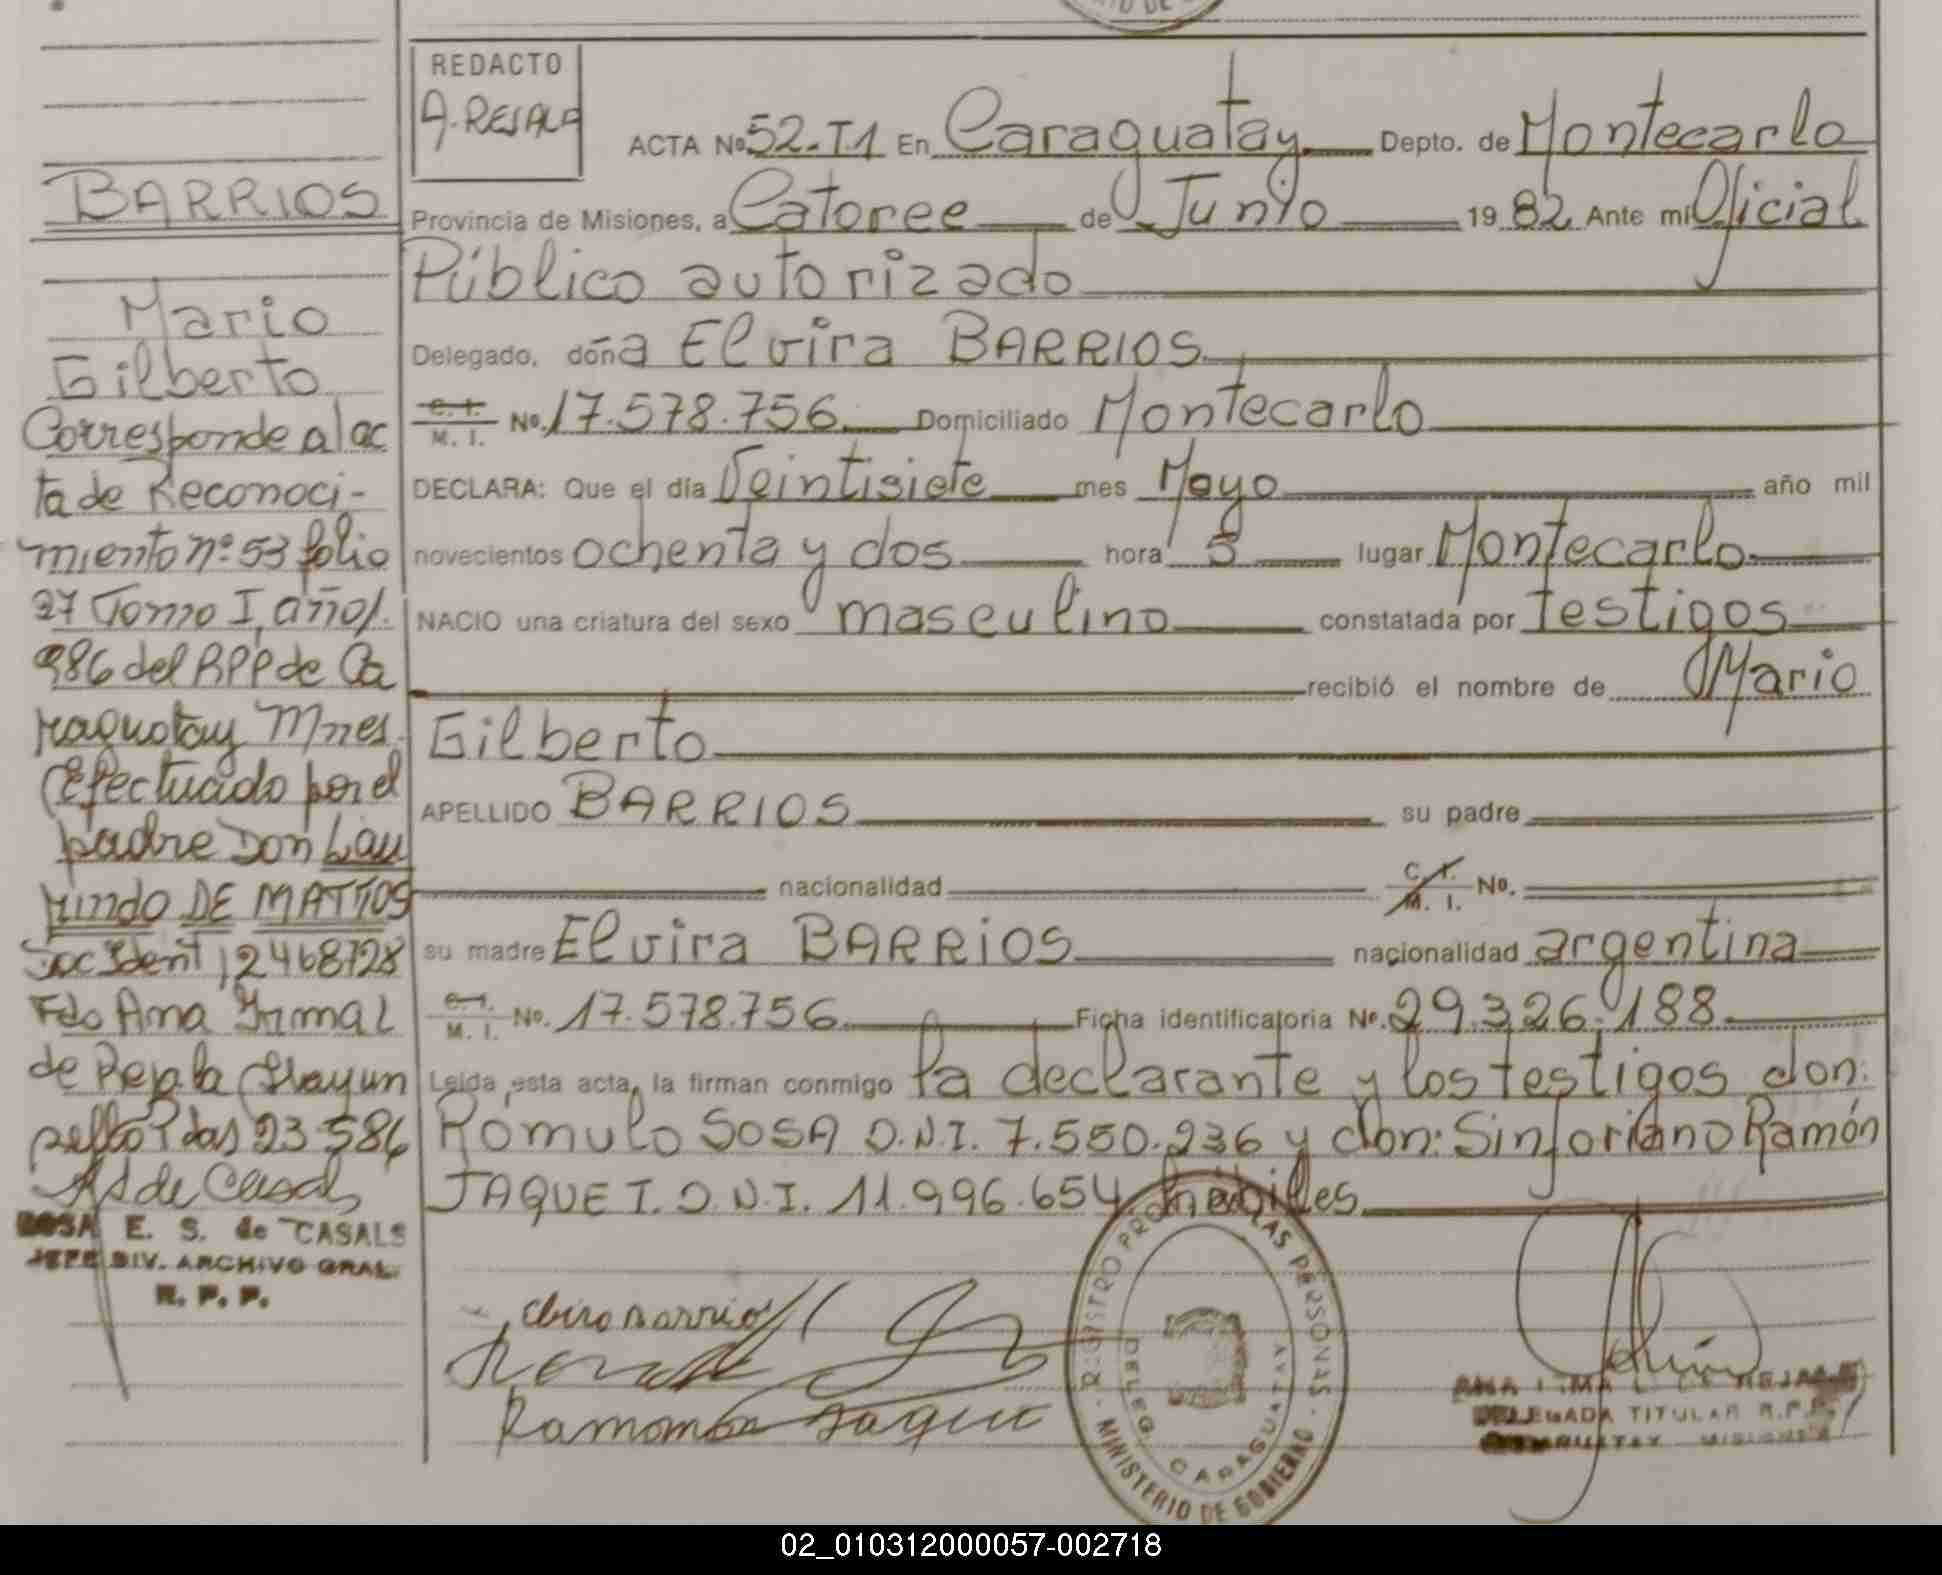 REDACTO
A. REJALA
ACTA Nº 52-T1 En Caraguatay Depto. de Montecarlo
Provincia de Misiones, a Catorce de Junio 1982 Ante mi Oficial
Público autorizado
Delegado, doña Elvira BARRIOS
C. I. M. I. Nº. 17.578.756 Domiciliado Montecarlo
DECLARA: Que el día Veintisiete mes Mayo año mil
novecientos ochenta y dos hora 5 lugar Montecarlo
NACIO una criatura del sexo masculino constatada por testigos
recibió el nombre de Mario
Gilberto
APELLIDO BARRIOS su padre
nacionalidad C. I. M. I. Nº.
su madre Elvira BARRIOS nacionalidad argentina
C. I. M. I. Nº. 17.578.756 Ficha identificatoria Nº. 29.326.188
Leida esta acta, la firman conmigo la declarante y los testigos don:
Romulo SOSA D.N.I. 7.550.236 y don: Sinforiano Ramón
JAQUE I. D.N.I. 11.996.654 habiles
BARRIOS
Mario
Gilberto
Corresponde al ac
ta de Reconoci-
miento nº 53 folio
27 Tomo I, año 1.
986 del RPP de Ca
raguatay Mnes.
Efectuado por el
padre Don Lau
rindo DE MATTOS
Doc Ident 12468728
Fdo Ana Irma L
de Rejala Hay un
sello Pdas 23586
ROSA E. S. de CASALS
JEFE DIV. ARCHIVO GRAL.
R. P. P.
Ramon Jaque
REGISTRO PROV. LAS PERSONAS
MINISTERIO DE GOBIERNO
DELEG. CARAGUATAY
ANA IRMA L. DE REJALA
DELEGADA TITULAR R.P.P.
CARAGUATAY MISIONES
02_010312000057-002718